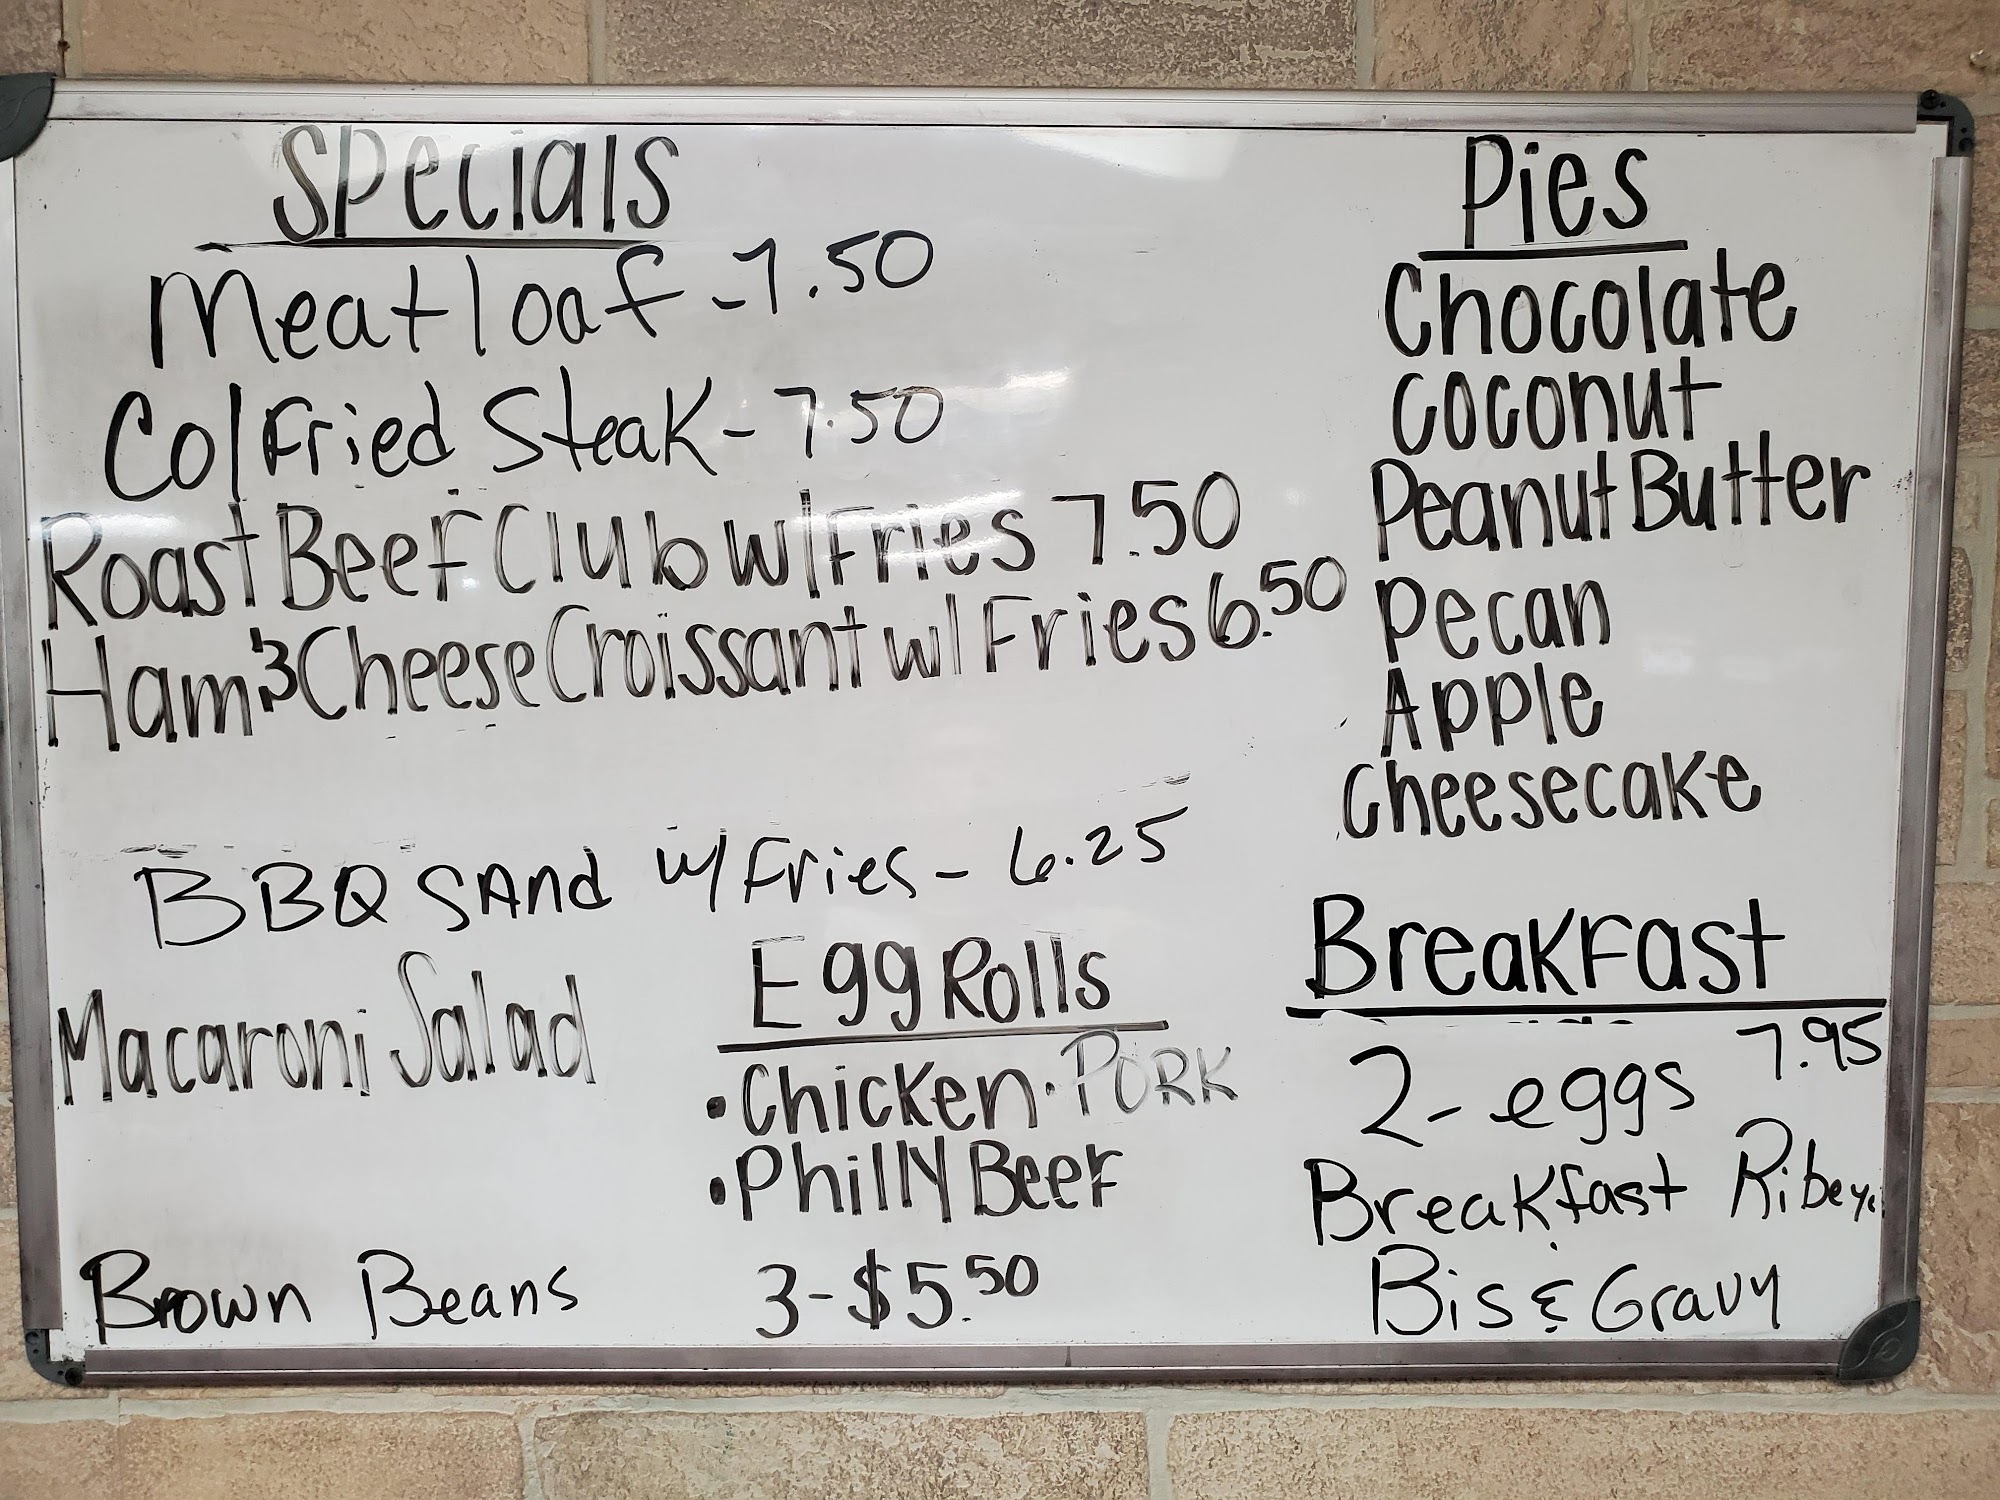 Specials
Meatloaf - 7.50
Co/Fried Steak - 7.50
Roast Beef Club w/Fries 7.50
Ham & Cheese Croissant w/Fries 6.50
BBQ SAnd w/ Fries - 6.25
Macaroni Salad
Brown Beans
Egg Rolls
• Chicken • PORK
• Philly Beef
3 - $5.50
Pies
Chocolate
Coconut
Peanut Butter
Pecan
Apple
Cheesecake
Breakfast
7.95
2 - eggs
Breakfast Ribeye
Bis & Gravy